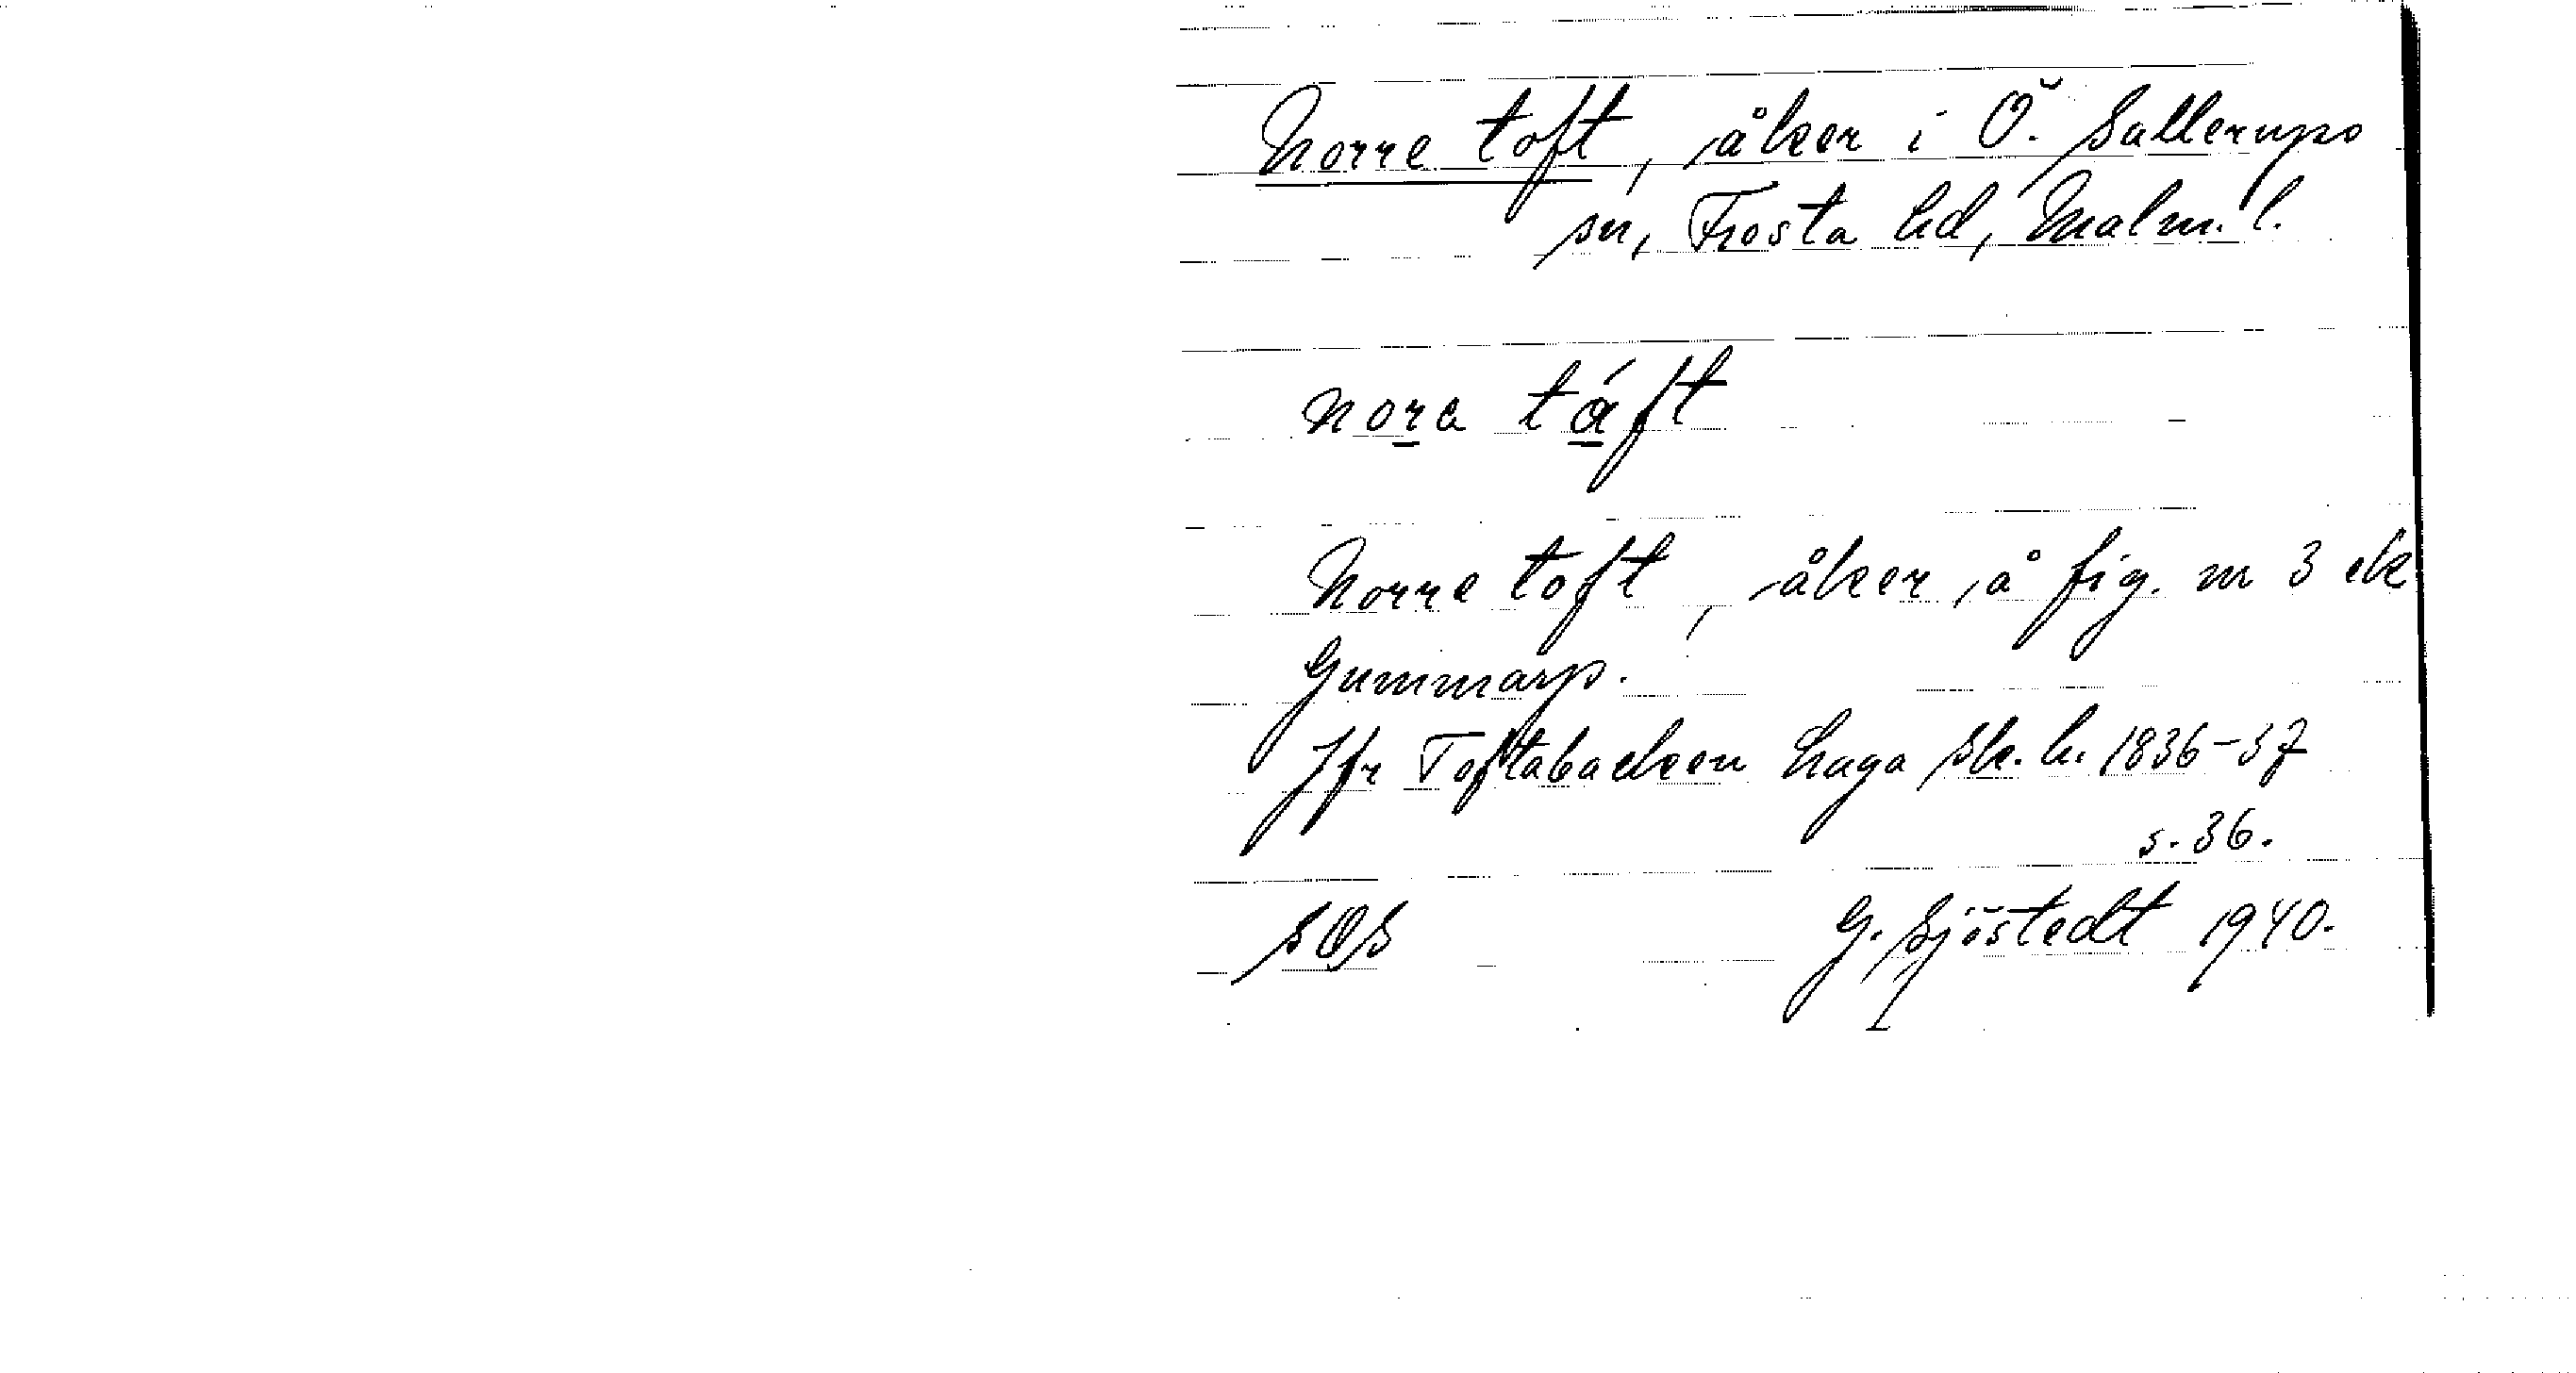 Norre toft, åker i Ö. Sallerups
sn, Frosta hd, Malm. l.
nora táft
Norre toft, åker å fig. nr 3 ek
Gummarp.
Jfr Toftabacken Laga sk. h. 1836-37
s. 36.
SOS G. Sjöstedt 1940.